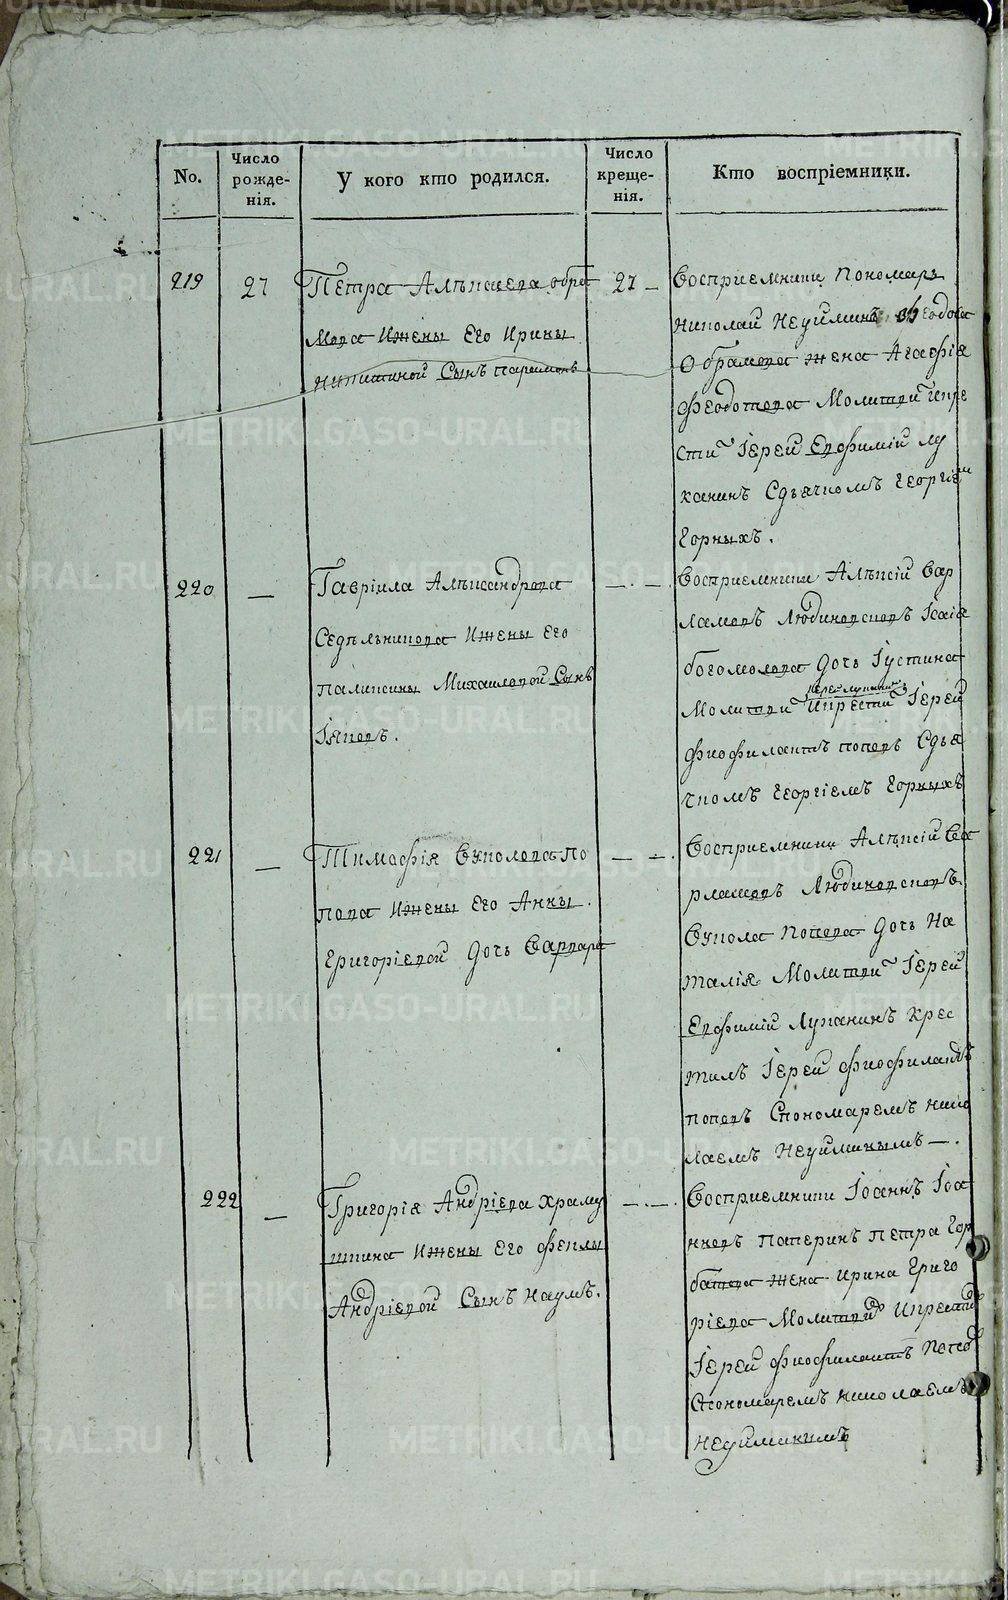 No.
Число рожде-нія.
У кого кто родился.
Число креще-нія.
Кто воспріемники.
219
27
Петра Алѣпаева обра
мова Ижены Его Ирины
Никитиной Сынъ парамонъ
27
Восприемники пономарь
николаи Неуиминъ Феодоса
Обрамова жена Агафія
Феодотова Молитви Икре
сти Іереи Евфимій лу
канинъ Сдьячкомъ Георгіем
Горныхъ.
220
—
Гавріила Алѣксандрова
Седѣльникова Ижены Его
паликсины Михаиловой Сынъ
Іяковъ.
— . — .
Восприемники Алѣксій Вар
ламовъ Любиновсковъ Ісаія
богомолова Дочь Іустина
Молитви Икрестил Іереи
Фиофилактъ поповъ Сдья
чкомъ Георгіемъ Горныхъ
221
—
Тимофія Вуколова По
пова Ижены Его Анны.
Григоріевой Дочь Варвара
— — .
Восприемники Алѣксій Ва
рламовъ Любиновсковъ
Вукола Попова Дочь На
талія Молитви Іереи
Евфимій Луканинъ Крес
тилъ Іереи Фиофилактъ
поповъ Спономаремъ нико
лаемъ Неуиминымъ — .
222
—
Григорія Андріева храму
шина Ижены Его Феклы
Андріевой Сынъ Наумъ.
— . — .
Восприемники Іоаннъ Іоа
нновъ Паперинъ Петра Гор
батова жена Ирина Григо
ріева Молитви Икрестил
Іереи Фиофилактъ Попов
Спономаремъ Николаемъ
Неуиминимъ
METRIKI.GASO-URAL.RU